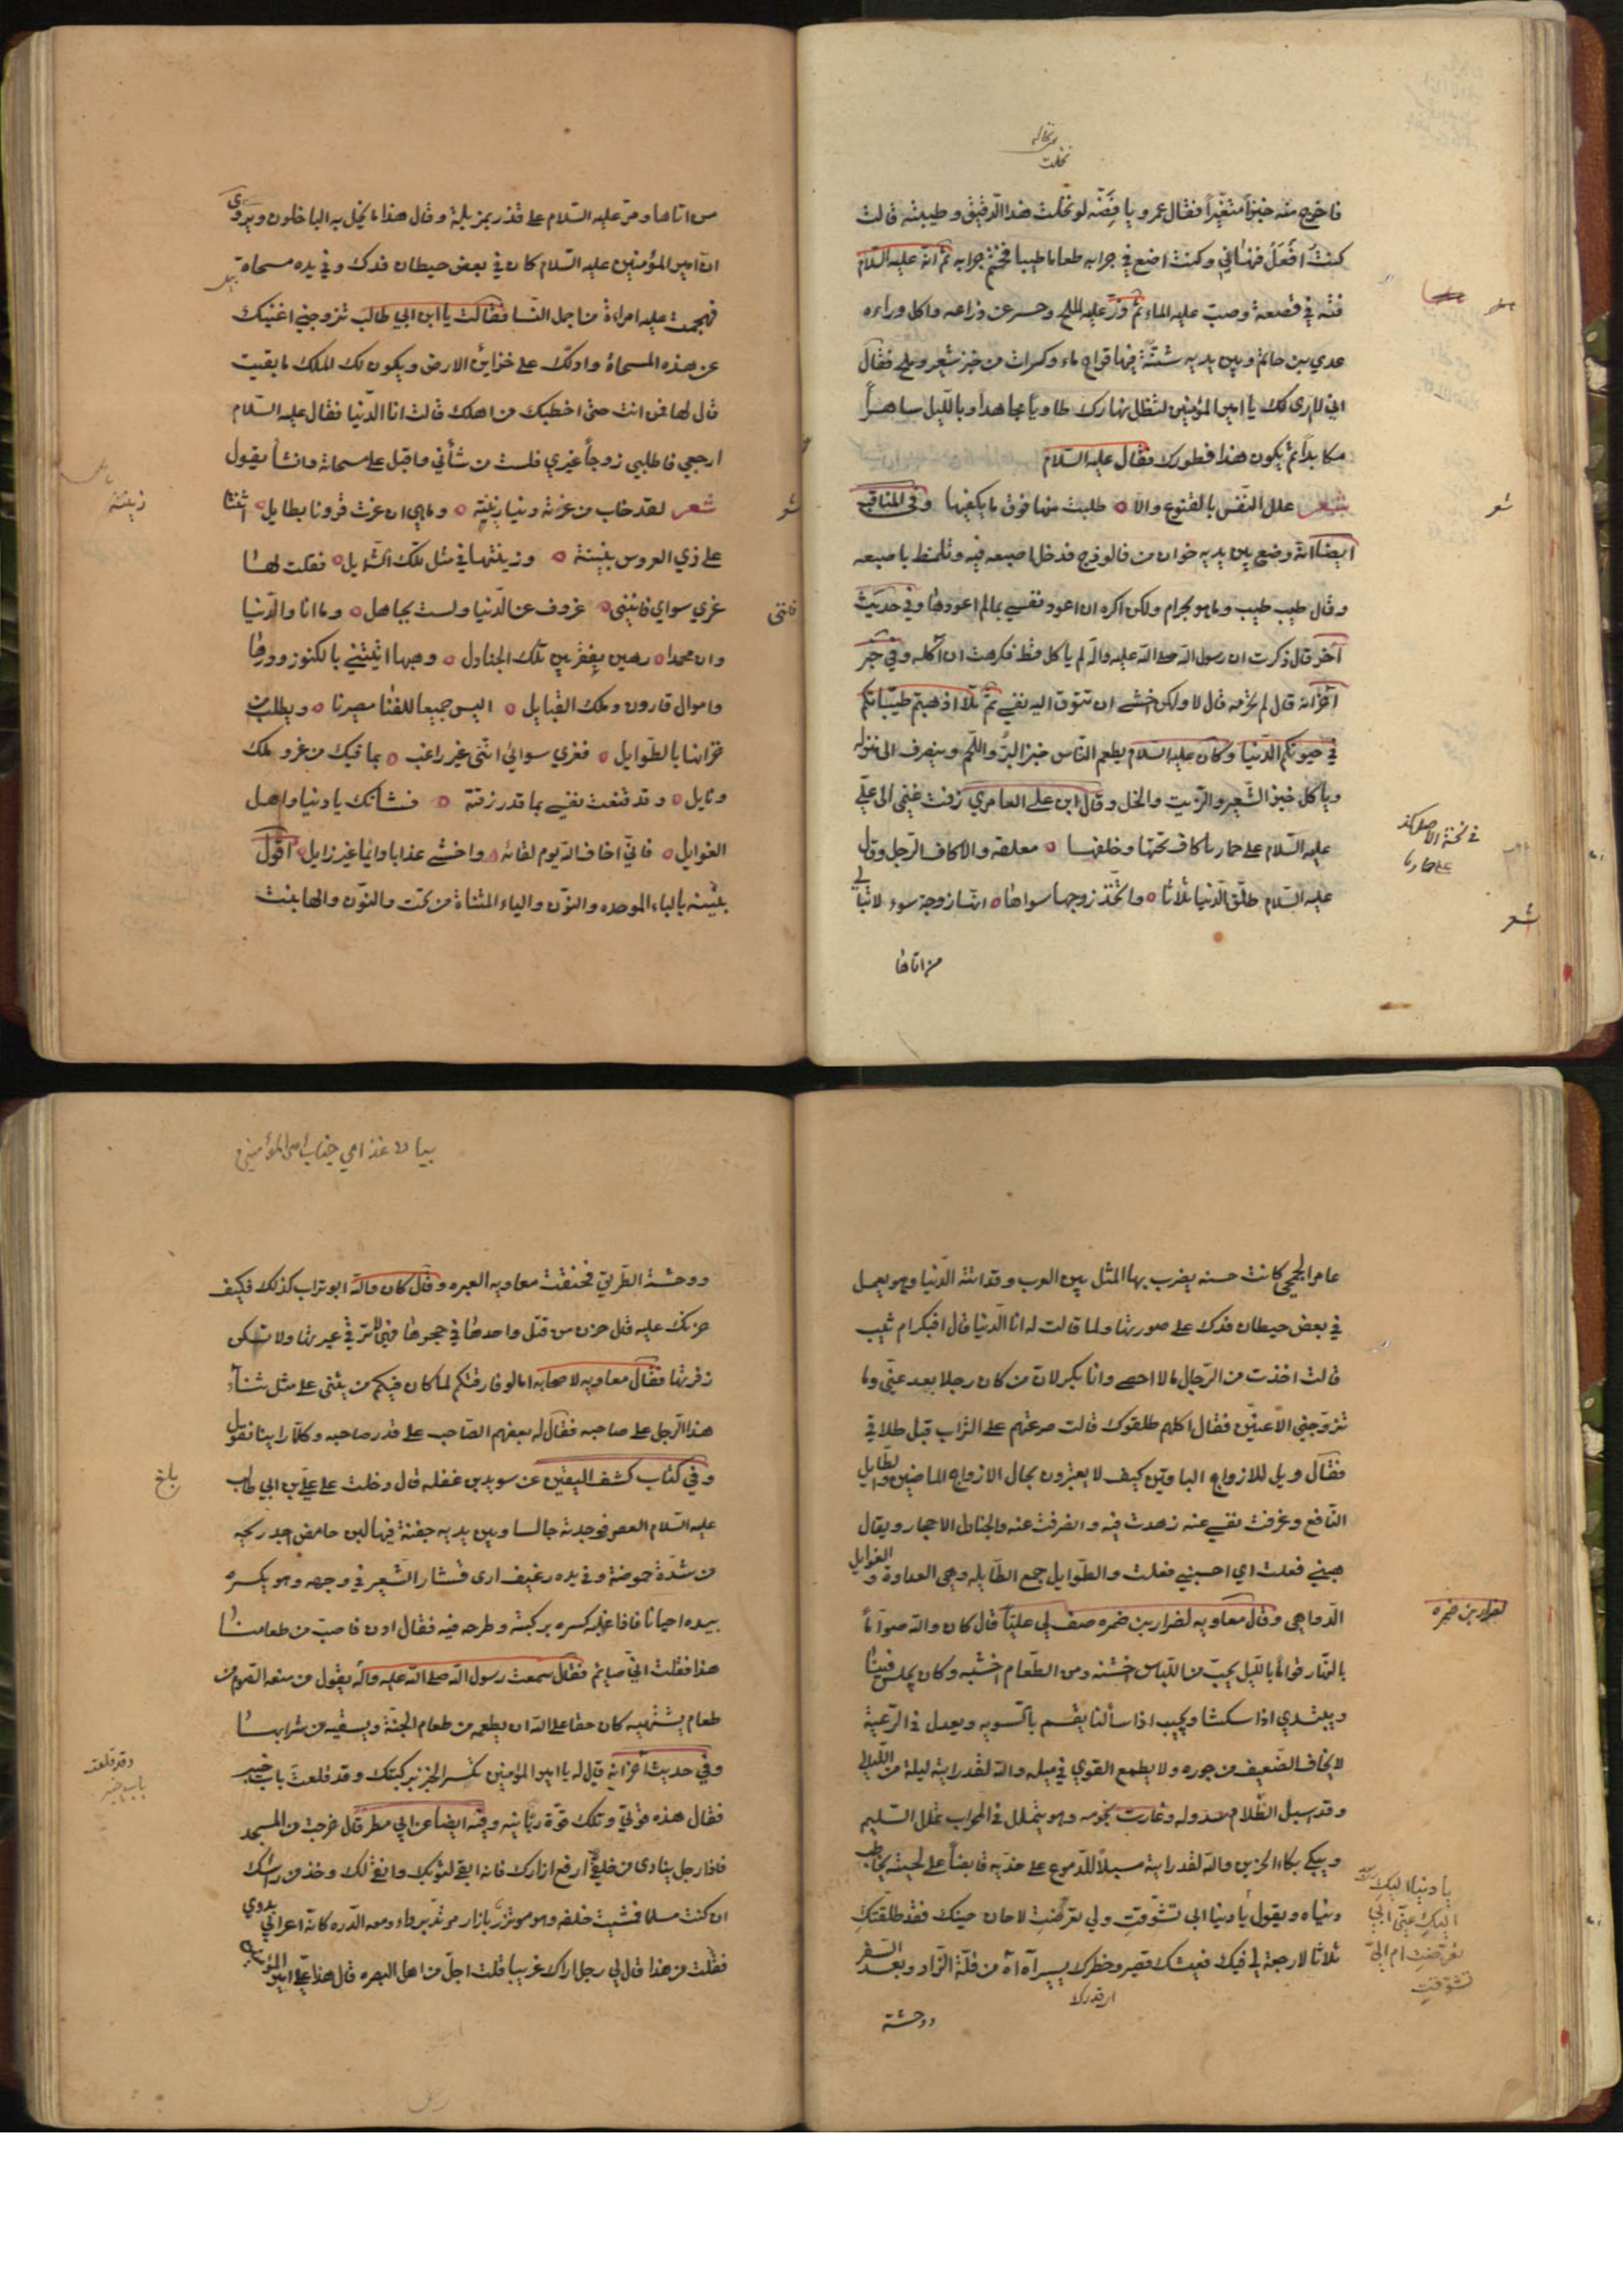 نخاله
نخلت
فاخرج منه خبزاً متغيراً فقال عمرو يا فِضّه لو نخلت هذا الدّقيق وطيبته قالت
كنتُ افعَلُ فنهاني وكنت اضع في جرابه طعاما طيبا فختم جرابه ثمّ انه عليه السّلام
فتّه في قصعة وصبّ عليه الماء ثم ذرّ عليه الملح وحسر عن ذراعه واكل وراءه
عدي بن حاتم وبين يديه شنّة فيها قراح ماء وكسرات من خبز شعير وملح فقال
اني لا رى لك يا امير المؤمنين لتظل نهارك طاوياً مجاهداً وبالليل ساهراً
مكابداً ثم يكون هذا فطورك فقال عليه السّلام
شعر علل النّفس بالقنوع والا طلبت منها فوق ما يكفيها وفي المناقب
ايضا انّه وضع بين يديه خوان من فالوذج فدخل اصبعه فيه وتلمظ باصبعه
وقال طيب طيب وما هو بحرام ولكن اكره ان اعود نفسي بما لم اعودها وفي حديث
آخر قال ذكرت ان رسول الله صلى الله عليه واله لم ياكل قط فكرهت ان آكله وفي خبر
آخر انه قال لم تحرمه قال لا ولكن اخشى ان تتوق اليه نفسي ثمّ تلا اذهبتم طيّباتكم
في حيوتكم الدّنيا وكان عليه السّلام يطعم النّاس خبز البرّ واللّحم وينصرف الى منزله
وياكل خبز الشّعير والزّيت والخل وقال ابن علي العامري زفت غنى الى علي
عليه السّلام على حمار باكاف تحتها وخلفها معلقه والاكاف الرّحل وقال
عليه السّلام طلّق الدّنيا ثلاثا واتّخذ زوجا سواها انّها زوجة سوء لا تبالي
من اتاها
شعر
في نسخة الاصل كذا
على حار با
شعر
من اتاها ومرّ عليه السّلام على قذر بمزبلة وقال هذا ما بخل به الباخلون ويروى
ان امير المؤمنين عليه السّلام كان في بعض حيطان فدك وفي يده مسحاة
فهجمت عليه امراءة من اجمل النّسا فقالت يا ابن ابي طالب تزوجني اغنيك
عن هذه المسحاة وادلّك على خزاين الارض ويكون لك الملك ما بقيت
قال لها من انت حتى اخطبك من اهلك قالت انا الدّنيا فقال عليه السّلام
ارجعي فاطلبي زوجاً غيري فلست من شأني واقبل على مسحاته وانشأ يقول
شعر لقد خاب من غرته دنيا زينة وما هي ان غرت قرونا بطايل اتتنا
على زي العروس بثينة وزينتها في مثل تلك الشّمايل فقلت لها
غري سواي فانني عزوف عن الدّنيا ولست بجاهل وما انا والدّنيا
وان محمدا رهين بقفر بين تلك الجنادل وهبها اتتني بالكنوز ودرها
واموال قارون وملك القبايل اليس جميعا للفنا مصيرنا ويطلب من
خزانها بالطّوايل فغري سوائي انّني غير راغب بما فيك من عز وملك
ونايل وقد قنعت نفسي بما قد رزقته فشانك يا دنيا واهل
الغوايل فانّي اخاف الله يوم لقائه واخشى عذابا دائما غير زايل اقول
بثينه بالباء الموحده والنوّن والياء المثناة من تحت والنوّن والها بنت
زينته
شعر
فانني
عامر الجمحي كانت حسنه يضرب بها المثل بين العرب وقد اتته الدّنيا وهو يعمل
في بعض حيطان فدك على صورتها ولما قالت له انا الدّنيا قال افبكر ام ثيب
قالت اخذت من الرّجال ما لا احصى وانا بكر لان من كان رجلا بعد عنّي وما
تزوّجني الّا عنّين فقال اكلهم طلقوك قالت صرعتهم على التراب قبل طلاقي
فقال ويل للازواج الباقين كيف لا يعتبرون بحال الازواج الماضين والطّايل
النّافع وعزفت نفسي عنه زهدت فيه وانصرفت عنه والجنادل الاحجار ويقال
هبني فعلت اي احسبني فعلت والطّوايل جمع الطّايله وهي العداوة والغوايل
الدّواهي وقال معاويه لضرار بن ضمره صف لي عليّاً قال كان والله صوّاماً
بالنّهار قوّاماً بالليل يحبّ من اللّباس اخشنه ومن الطّعام اخشبه وكان يجلس فينا
ويبتدي اذا سكتنا ويجيب اذا سألنا يقسم بالسويه ويعدل في الرّعيّة
لا يخاف الضّعيف من جوره ولا يطمع القوي في ميله والله لقد رايته ليلة من اللّيالي
وقد اسبل الظّلام سدوله وغارت نجومه وهو يتململ في المحراب تململ السّليم
ويبكي بكاء الحزين والله لقد رايته مسيلاً للدّموع على خدّيه قابضاً على لحيته يخاطب
دنياه ويقول يا دنيا ابي تشوّقتِ ولي تعرّضتِ لا حان حينك فقد طلّقتكِ
ثلاثا لا رجعة لي فيك فعيشك قصير وخطرك يسير آه آه من قلّة الزّاد وبعد السّفر
ووحشة
لضرار بن ضمره
يا دنيا اليكِ
اليكِ عنّي ابي
تعرّضتِ ام اليّ
تشوّقتِ
بيان غذاهي جناب امير المؤمنين
ووحشة الطّريق فخنقت معاويه العبره وقال كان والله ابو تراب كذلك فكيف
حزنك عليه قال حزن من قتل واحدها في حجرها فهي لا ترقى عبرتها ولا تسكن
زفرتها فقال معاويه لاصحابه اما لو فارقتكم لما كان فيكم من يثني على مثل ثناء
هذا الرّجل على صاحبه فقال له بعضهم الصّاحب على قدر صاحبه وكلما راينا نقول
وفي كتاب كشف اليقين عن سويد بن غفله قال دخلت على علي بن ابي طالب
عليه السّلام العصر فوجدته جالسا وبين يديه جفنة فيها لبن حامض اجد ريحه
من شدّة حموضة وفي يده رغيف ارى قشار الشّعير في وجهه وهو يكسره
بيده احيانا فاذا غلبه كسره بركبته وطرحه فيه فقال ادن فاصب من طعامنا
هذا فقلت انّي صايم فقال سمعت رسول الله صلى الله عليه واله يقول من منعه الصّوم من
طعام يشتهيه كان حقا على الله ان يطعمه من طعام الجنّة ويسقيه من شرابها
وفي حديث آخر انه قيل له يا امير المؤمنين تكسر الخبز بركبتك وقد قلعت باب خيبر
فقال هذه قوتي وتلك قوّة ربّانيه وفيه ايضا عن ابي مطر قال خرجت من المسجد
فاذا رجل ينادي من خلفي ارفع ازارك فانه ابقى لثوبك وانقى لك وخذ من راسك
ان كنت مسلما فمشيت خلفه وهو موتزر بازار مرتد برداء ومعه الدّره كانّه اعرابي بدوي
فقلت من هذا قال لي رجل اراك غريبا قلت اجل من اهل البصره قال هذا علي امير المؤمنين
بلغ
وقد قلعت
باب خيبر